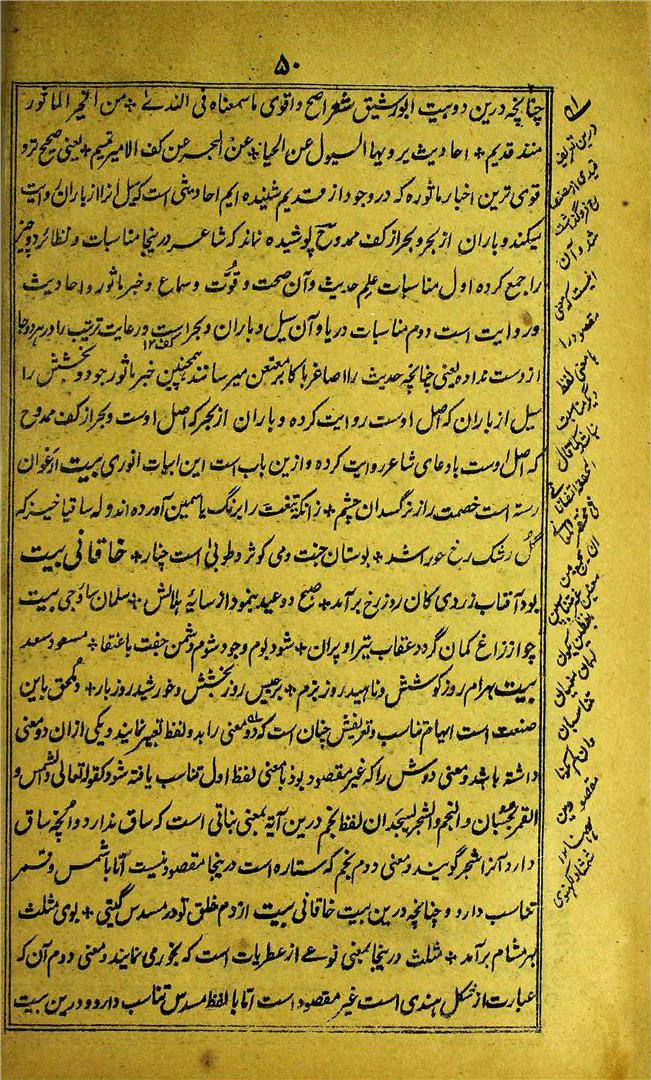 ۵۰
چنانچه درین دو بیت ابو رشیق شعر اصح و اقوی ما سمعناه فی الندے + من الخبر الماثور
منذ قدیم + احادیث یرویها السیول عن الحیا + عن البحر عن کف الامیر تمیم + یعنی صحیح ترو
قوی ترین اخبار ماثوره که در وجود از قدیم شنیده ایم احادیثی است که سیل آنرا از باران روایت
میکند و باران از بحر و بحر از کف ممدوح پوشیده نماند که شاعر درینجا مناسبات و نظائر دو چیز
را جمع کرده اول مناسبات علم حدیث و آن صحت و قوّت و سماع و خبر ماثور و احادیث
و روایت است دوم مناسبات دریا و آن سیل و باران و بحر است و رعایت ترتیب را در هر دو جا
کف ۱۲
از دست نداده یعنی چنانچه حدیث را اصاغر با کابر معنعن میرسانند همچنین خبر ماثور جود و بخشش را
سیل از باران که اصل اوست روایت کرده و باران از بحر که اصل اوست و بحر از کف ممدوح
که اصل اوست بادعای شاعر روایت کرده و ازین باب است این ابیات انوری بیت ارغوان
رسته است خصمت را ز نرگسدان چشم + زانکه تیغت را برنگ یاسمین آورده اند وله ساقیا خیز که
گل رشک رخ حور اشد + بوستان جنت و می کوثر و طوبیٰ است چنار + خاقانی بیت
بود آفتاب زردی کان روز رخ برآمد + صبح دو عید بنمود از سایهٔ هلالش + سلمان ساوجی بیت
چو از زاغ کمان گردد عقاب تیر او پران + شود بوم وجود شوم دشمن جفت با عنقا + مسعود سعد
بیت بهرام روز کوشش و ناهید روز بزم + برجیس روز بخشش و خورشید روز بار + و ملحق باین
صنعت است ایهام تناسب و تعریفش چنان است که دو معنی را بدو لفظ تعبیر نمایند و یکی از ان دو معنی
داشته باشد و معنی دوش را که غیر مقصود بود با معنی لفظ اول تناسب یافته شود کقوله تعالی والشمس و
القمر بحسبان والنجم والشجر یسجدان لفظ نجم درین آیه بمعنی نباتی است که ساق ندارد و آنچه ساق
دارد آنرا شجر گویند و معنی دوم نجم که ستاره است درینجا مقصود نیست اما با شمس و قمر
تناسب دارد و چنانچه درین بیت خاقانی بیت از دم خلق تو در مسدس گیتی + بوی مثلث
بهر مشام برآمد + مثلث درینجا بمعنی نوعے از عطریات است که بخور می نمایند و معنی دوم آن که
عبارت از شکل هندی است غیر مقصود است اما با لفظ مسدس تناسب دارد و درین بیت
درین تعریف
قیدی از مصنف
شد و آن
اینست که معنی
مقصود را
با معنی لفظ
تناسبان
مقصودین